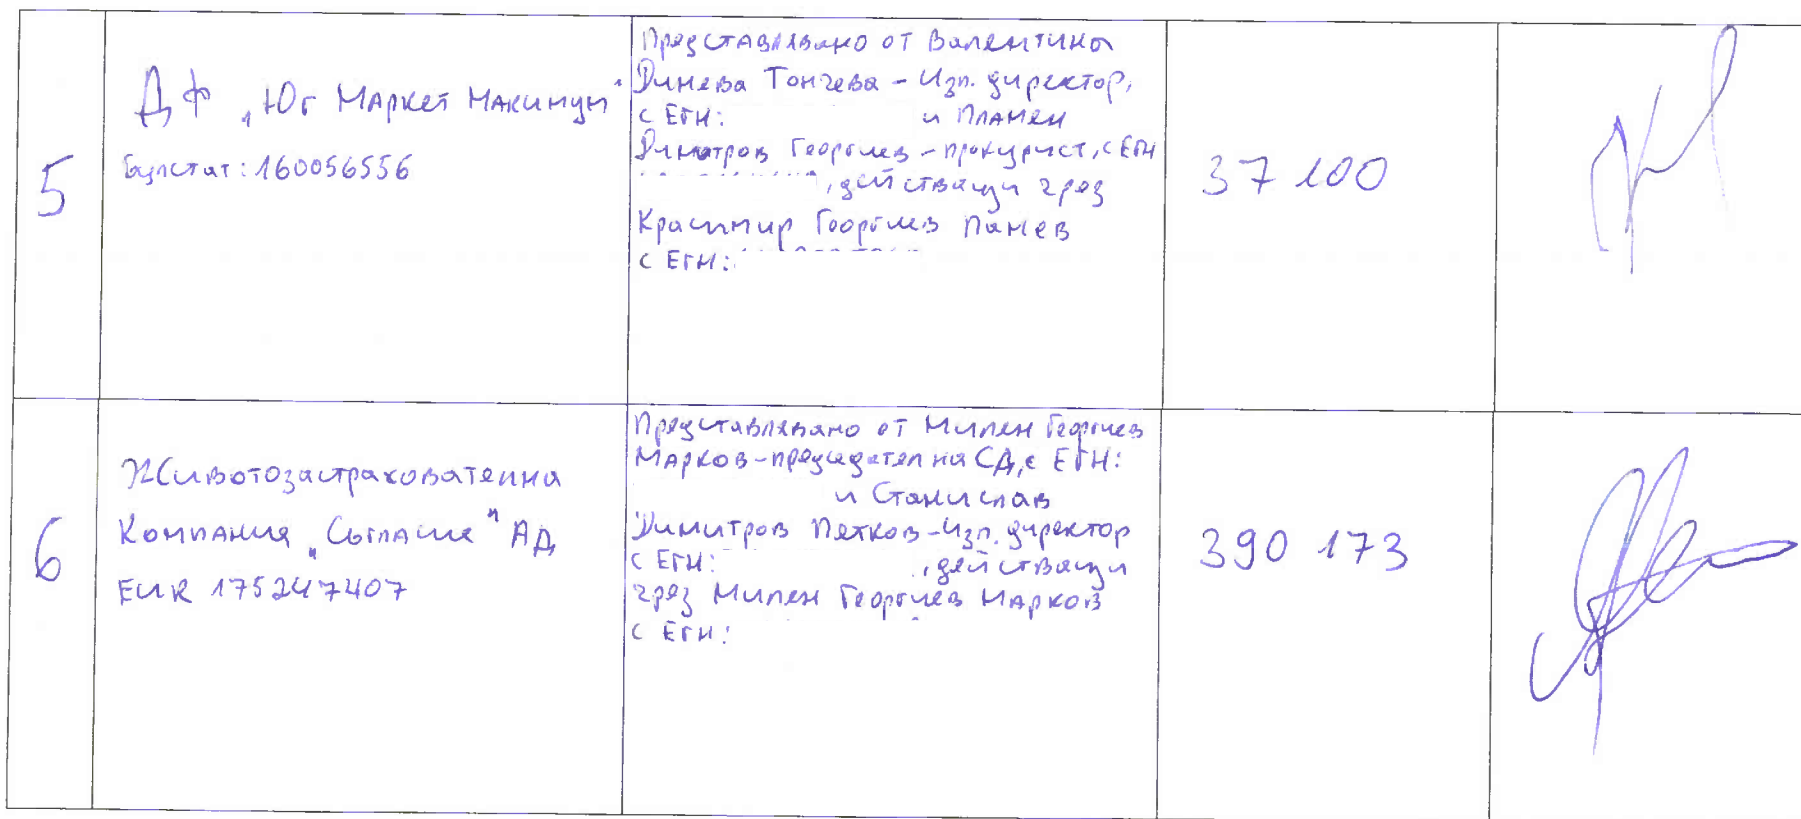 5
ДФ „Юг Маркет Макимум"
Булстат: 160056556
Представлявано от Валентина
Динева Тончева - Изп. директор,
с ЕГН: и Пламен
Димитров Георгиев - прокурист, с ЕГН
, действащи чрез
Красимир Георгиев Панев
с ЕГН:
37 100
6
Животозастрахователна
Компания „Съгласие" АД
ЕИК 175247407
Представлявано от Милен Георгиев
Марков - председател на СД, с ЕГН:
и Станислав
Димитров Петков - Изп. директор
с ЕГН: , действащи
чрез Милен Георгиев Марков
с ЕГН:
390 173